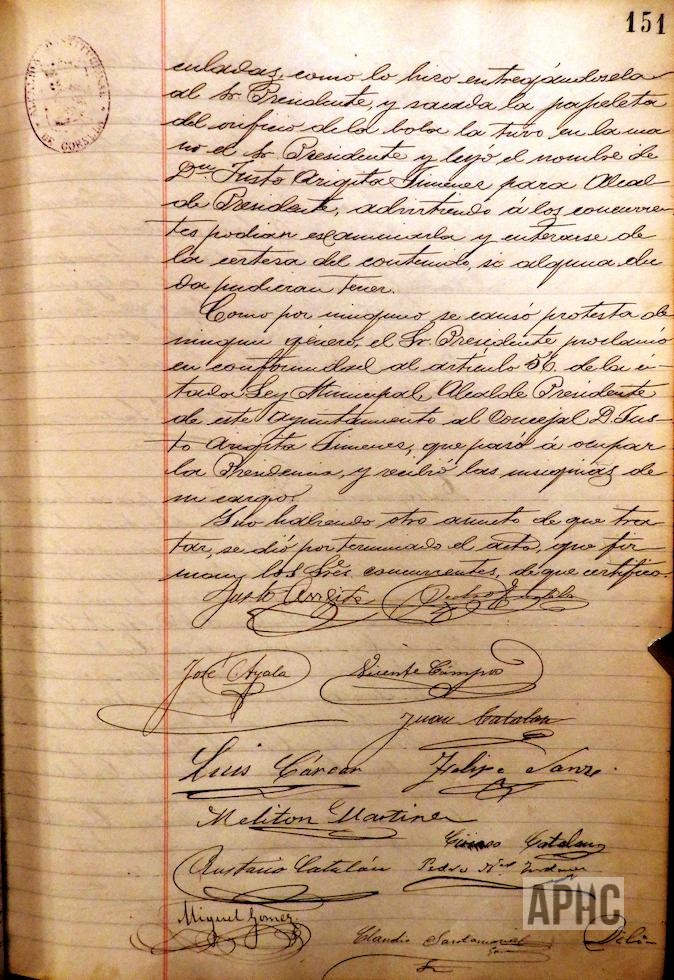 151
ALCALDIA CONSTITUCIONAL
DE CORNELLA
culadas, como lo hizo entregándosela
al Sr. Presidente, y sacada la papeleta
del orificio de la bola la tuvo en la ma
no el Sr. Presidente y leyó el nombre de
Dn. Justo Arigita Jimenez para Alcal-
de Presidente, advirtiendo á los concurren
tes podian examinarla y enterarse de
la certesa del contenido, si alguna du
da pudieran tener.
Como por ninguno se causó protesta de
ningun género, el Sr. Presidente proclamó
en conformidad al artículo 56 de la ci-
tada Ley Municipal, Alcalde Presidente
de este Ayuntamiento al Concejal D. Jus-
to Arigita Jimenez, que pasó á ocupar
la Presidencia, y recibió las insignias de
su cargo.
Y no habiendo otro asunto de que tra
tar, se dió por terminado el acto, que fir
man los Sres. concurrentes, de que certifico.
Justo Arigita Pedro
José Ayala Vicente Campos
Juan Catalan
Luis Cárcar Felipe Sanz
Meliton Martinez
Ciriaco Catalan
Eustasio Catalán Pedro
Miguel Gomez
Claudio Santamaria
APHC